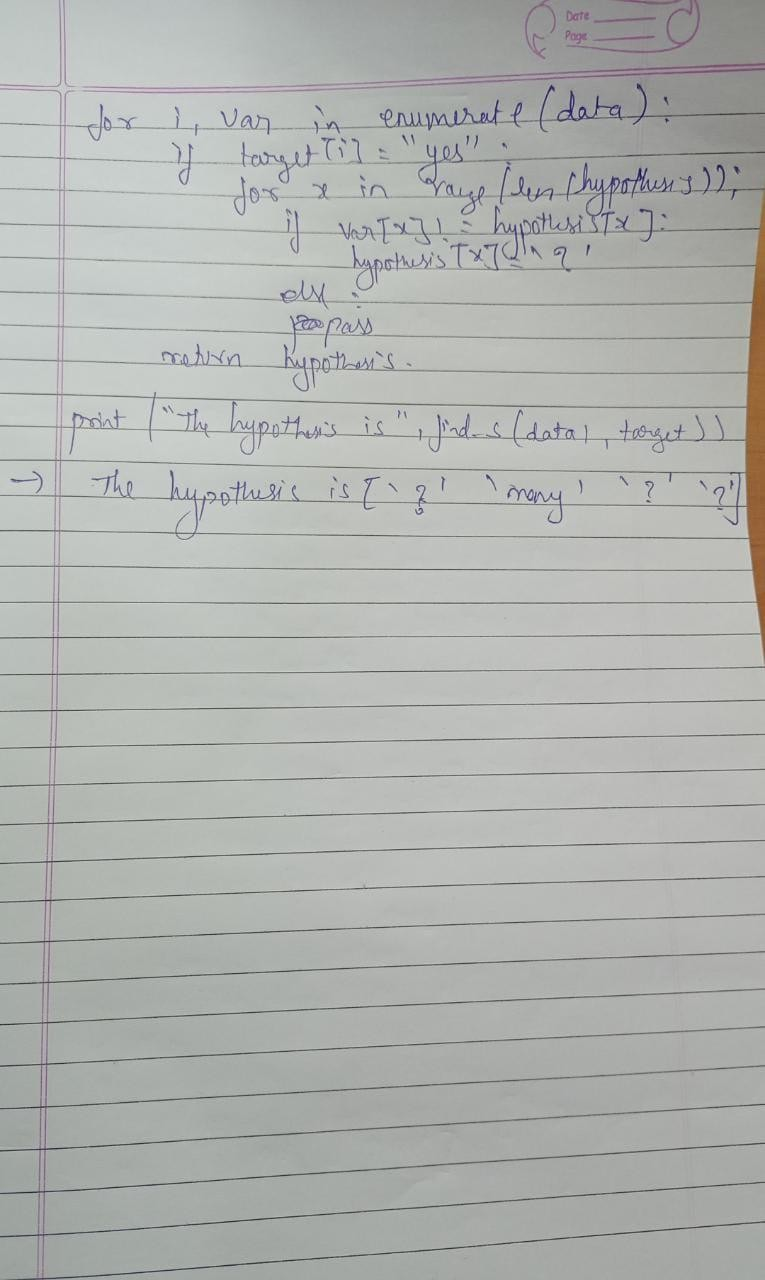 Date
Page
for i, var in enumerate (data) :
if target [i] = "yes" :
for x in range (len (hypothesis)) ;
if var[x] ! = hypothesis[x] :
hypothesis [x] = '?'
else :
pass
return hypothesis.
print ("The hypothesis is", find_s (data1, target))
→ The hypothesis is ['?' 'many' '?' '?']